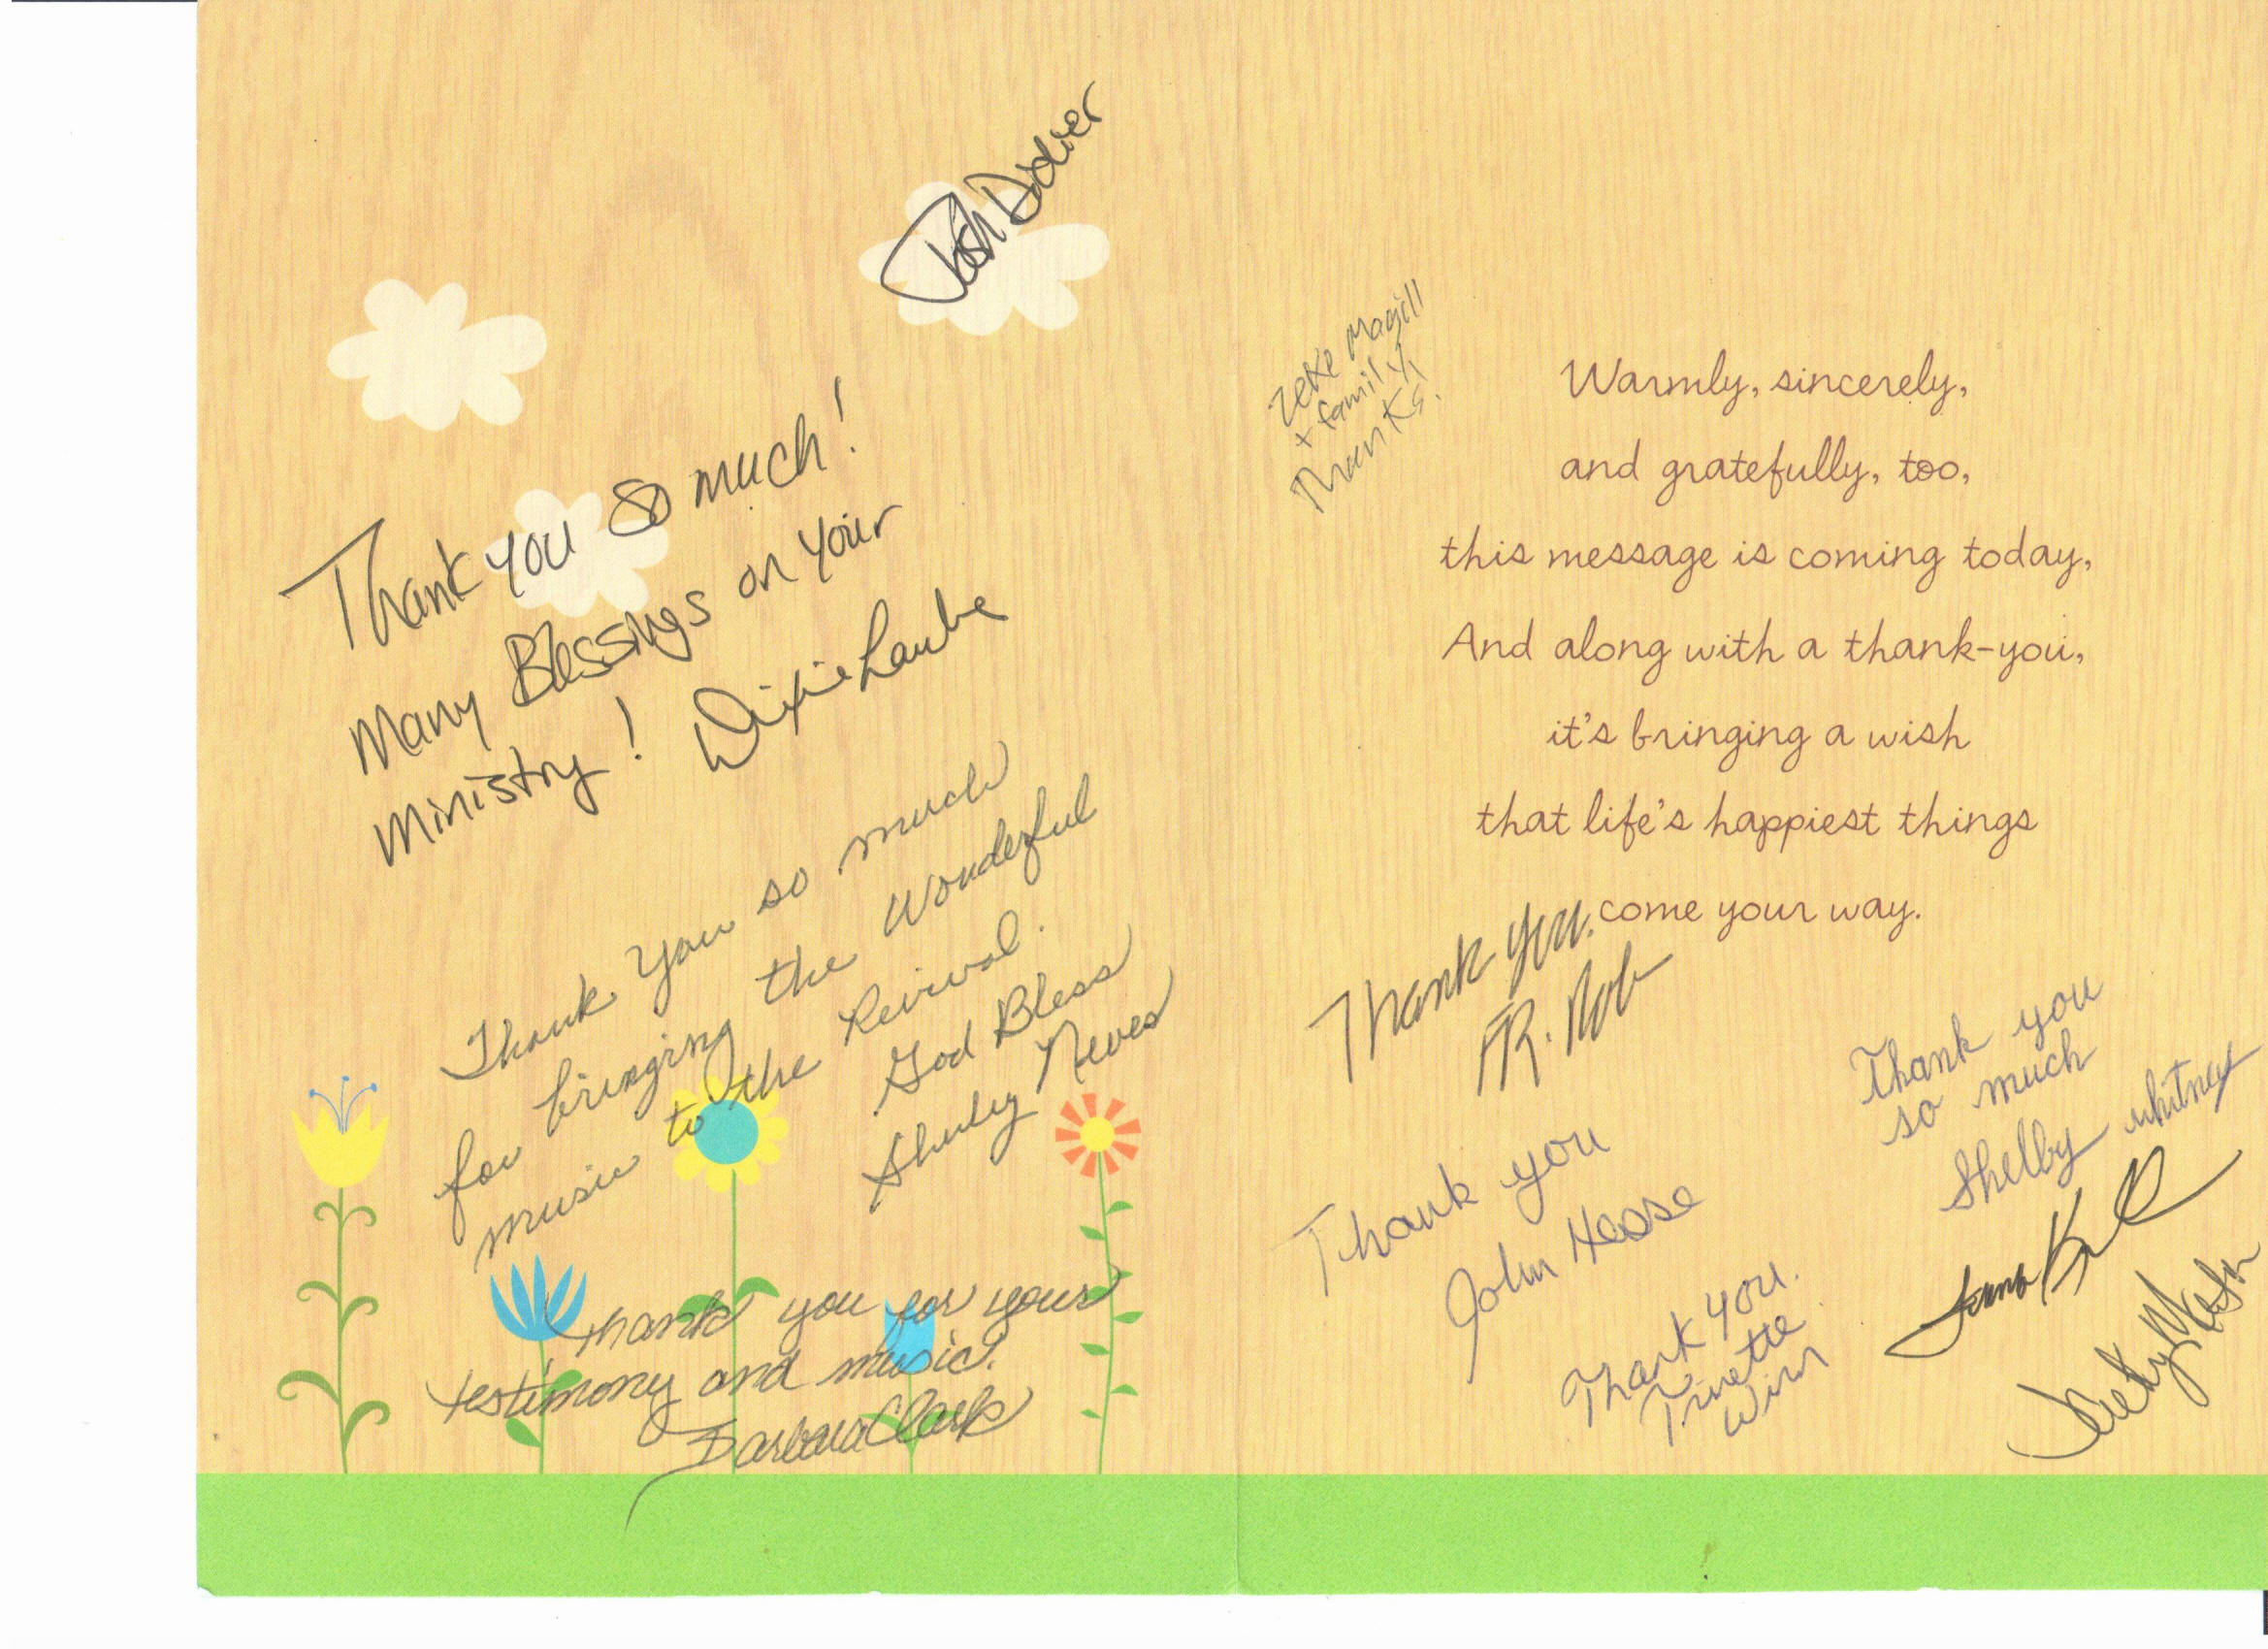 Josh Didier
Thank you so much!
Many Blessings on your
ministry! Dixie Laube
Thank you so much
for bringing the wonderful
music to the Revival.
God Bless
Shirley Neves
Thank you for your
testimony and music!
Barbara Clark
Zeke Magill
+ family
Thanks.
Warmly, sincerely,
and gratefully, too,
this message is coming today,
And along with a thank-you,
it's bringing a wish
that life's happiest things
come your way.
Thank you.
FR. Rob
Thank you
so much
Shelby Whitney
Thank you
John Hesse
Thank you.
Trinette
Winn